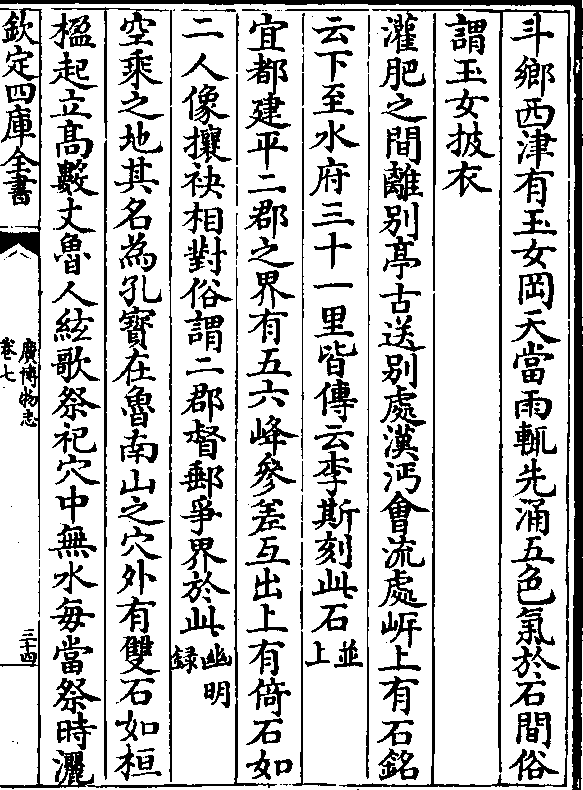 斗鄉西津有玉女岡天當雨輒先涌五色氣於石間俗
謂玉女披衣
灌肥之間離別亭古送別處漢沔會流處岸上有石銘
云下至水府三十一里皆傳云李斯刻此石並上
宜都建平二郡之界有五六峰參差互出上有倚石如
二人像攘袂相對俗謂二郡督郵爭界於此幽明録
空乘之地其名為孔寶在魯南山之穴外有雙石如桓
楹起立髙數丈魯人絃歌祭祀穴中無水每當祭時灑
欽定四庫全書
廣博物志
卷七
三十四